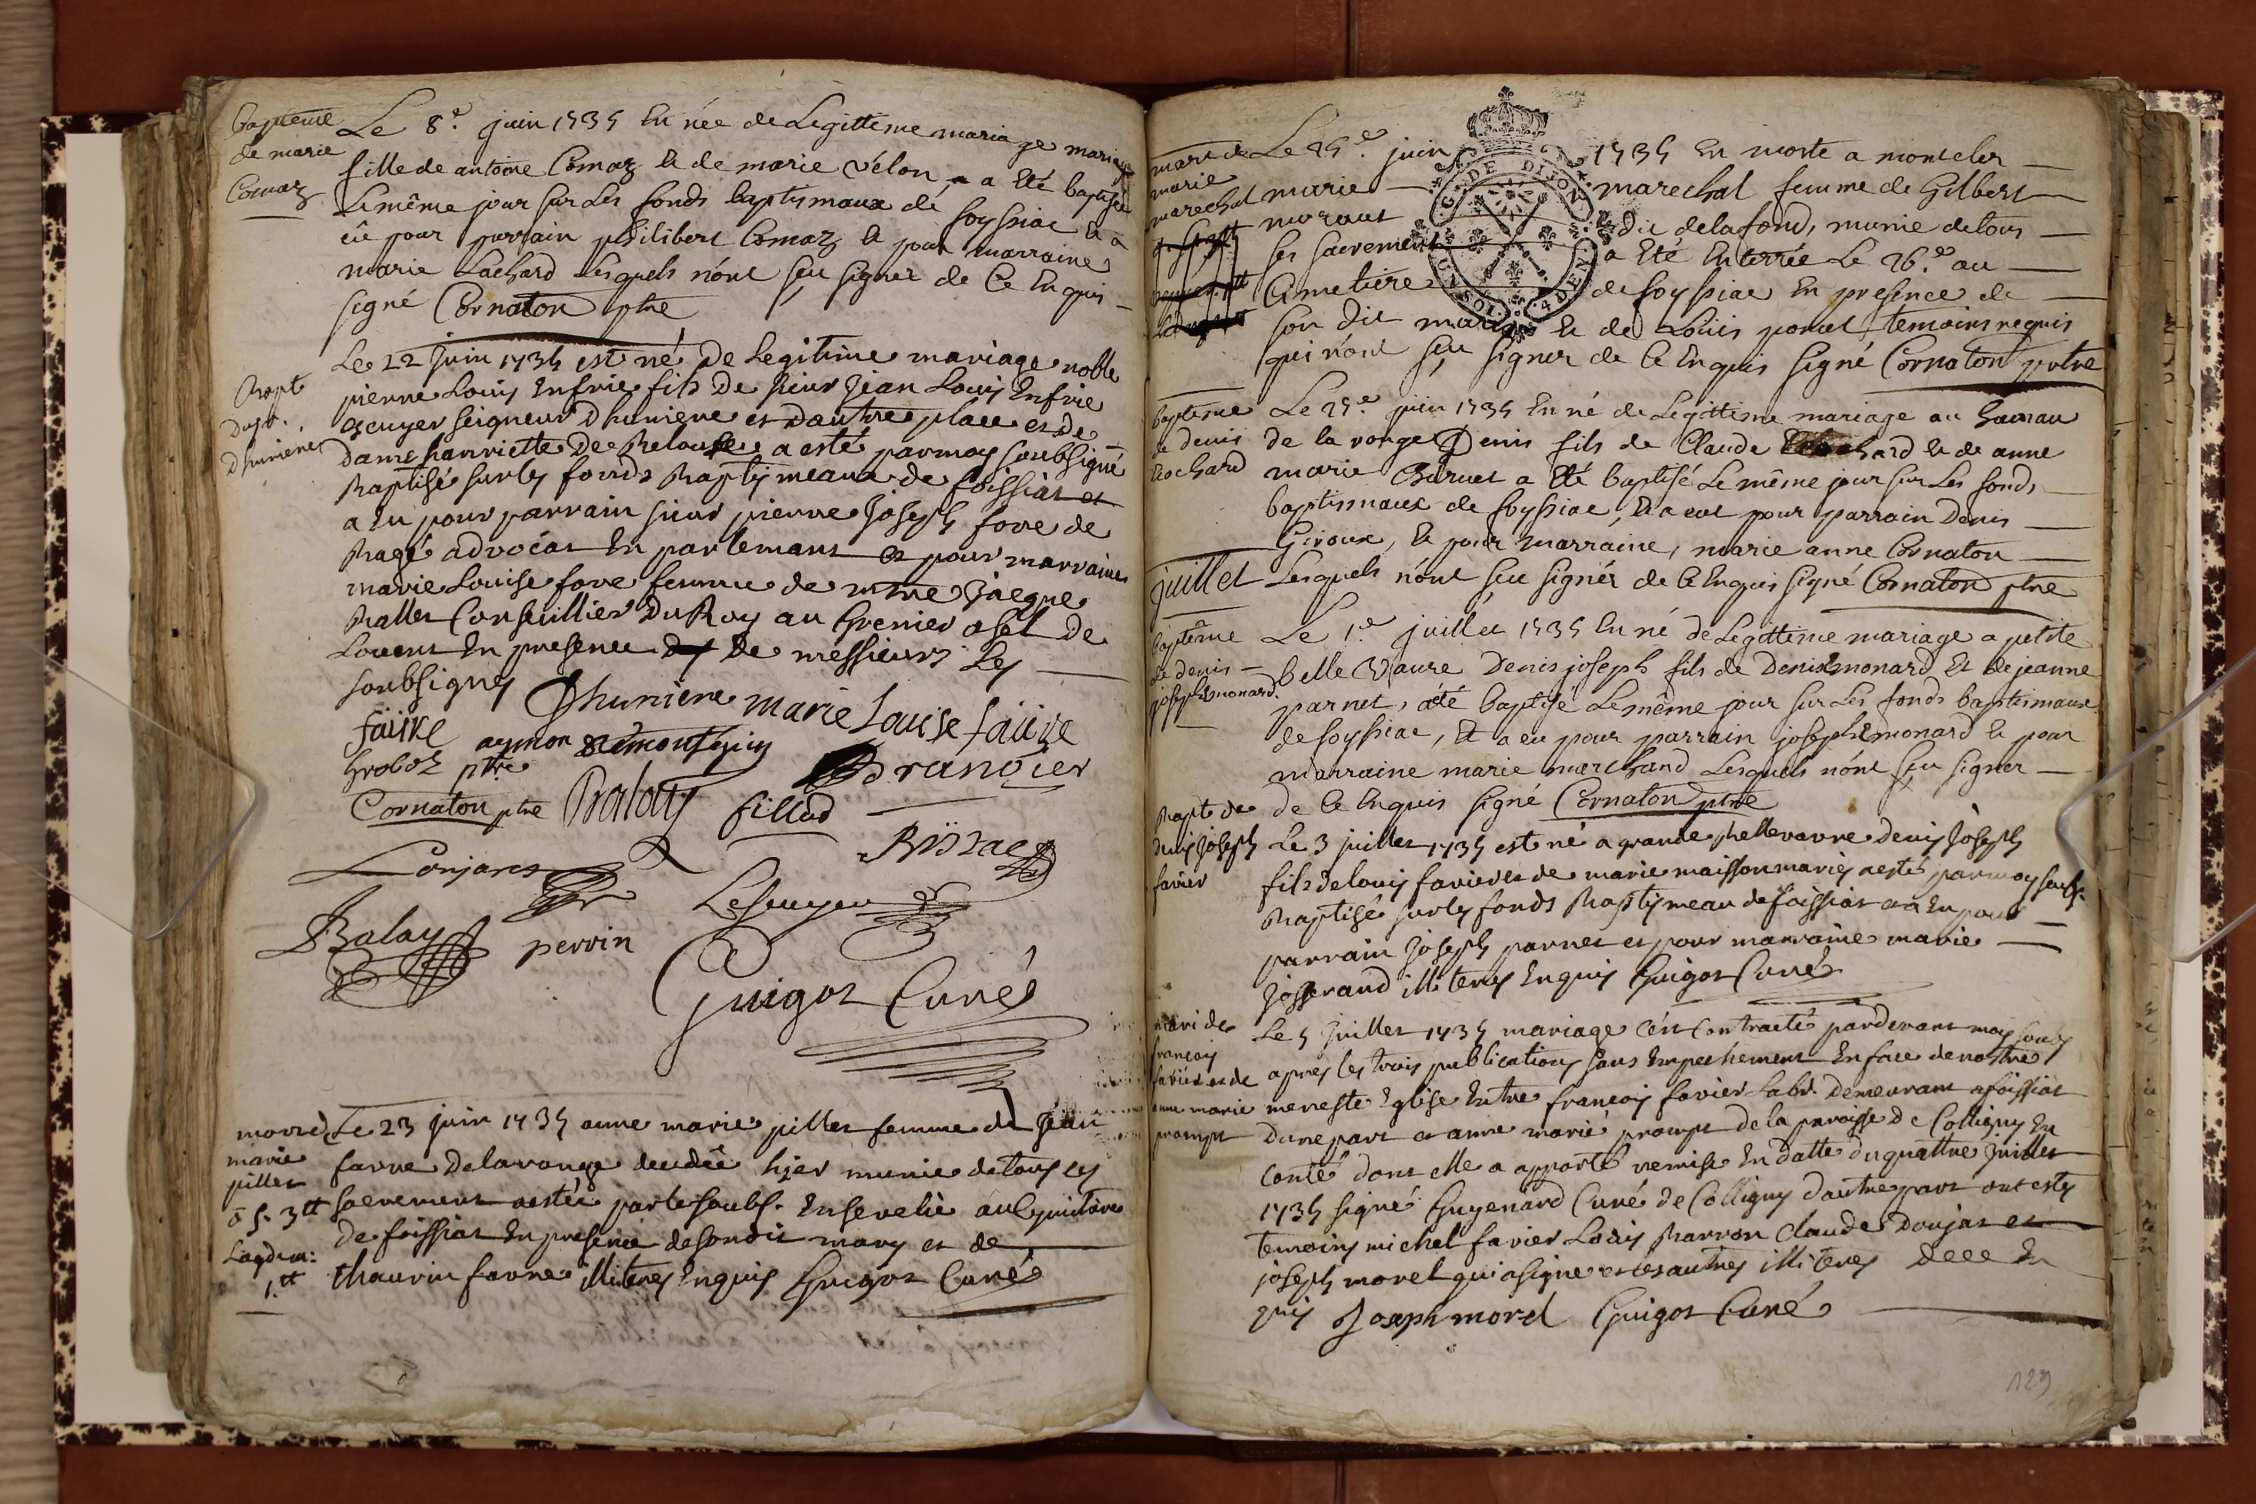 baptême
de marie
Comaz
Le 8.e juin 1735 En née de Legitteme mariage marie
fille de antoine Comaz et de marie vélon a Eté baptisée
Le même jour sur Les fonds baptismaux de foyssiac Et a
eû pour parrain philibert Comaz et pour marraine
marie Lachard Lesquels n'ont sçu signer de Ce Enquis
signé Cornaton ptre
Bapt
du sr.
dhuriene
Le 22 juin 1735 est né De Legitime mariage noble
pierre Louis Enfrie fils De sieur Jean Louis Enfrie
escuyer seigneur dhuriene et dautre place et de
dame hanriette De a esté parmoy soubsigné
Baptisé sur les fonds Baptismeaux de foissiat et
a Eu pour parrain sieur pierre Joseph fore de
Ragé advocat En parlemant et pour marraine
marie Louise fore femme de mtre Jacque
Ballet Conseillier Du Roy au Grenier a sel de
Louens En presence De messieurs Les
soubsignes
Dhuriene marie Louise faüre
faüre aymon
Groboz ptre
Cornaton ptre Balay fillod
Conjard
Balay perrin
Guigot Curé
mort de
marie
pillet
3tt
1.tt
Le 23 juin 1735 anne marie pillet femme de Jean
favre Delaronge decedée hier munie de tous les
sacrement aestée par le soubs. Ensevelie au Cymitiere
de foissiat En presence de son dit mary et de
thaurin favre illiteres Enquis Guigot Curé
mort de
marie
marechal
Le 25.e juin 1735 En morte a montcler
marie marechal femme de Gilbert
morant dit delafond, munie detous
ses sacrement a Eté Enterrée Le 26.e au
Cimetiere de foyssiac En presence de
son dit mary et de Loüis ponat, temoins requis
qui n'ont sçu signer de Ce Enquis signé Cornaton prtre
baptême
de denis
Rochard
Le 25.e juin 1735 En né de Legittime mariage au hamau
de la ronge Denis fils de Claude et de anne
marie a Eté baptisé Le même jour sur Les fonds
baptismaux de foyssiac, Et a eut pour parrain Denis
Giroux, Et pour marraine, marie anne Cornaton
Lesquels n'ont sçu signer de Ce Enquis signé Cornaton ptre
juillet
baptême
de denis
joseph monard.
Le 1.e juillet 1735 En né de Legitteme mariage a petite
belle Vaure Denis joseph fils de Denis monard Et de jeanne
parnet, a été baptisé Le même jour sur Les fonds baptismaux
de foyssiac, Et a eu pour parrain joseph monard Et pour
marraine marie marchand Lesquels n'ont sçu signer
de Ce Enquis signé Cornaton ptre
Bapt de
denis joseph
favier
Le 3 juillet 1735 est né a grande Bellevavre denis Joseph
fils de louis favier et de marie maisson mariés aesté parmoy soubs.
Baptisé sur les fonds Baptismeau de foissiat et a Eu pour
parrain Joseph parnet et pour marraine marie
Josserand illiteres Enquis Guigot Curé
mari de
françois
favier et de
anne marie
prompt
Le 5 juillet 1735 mariage cést Contracté pardevant moy soubs
apres les trois publications sans Empechement En face de nostre
mereste Eglise Entre françois favier Labr. Demeurant a foissiat
Dune part et anne marie prompt de la paroisse de Colligny En
Conté dont elle a apporté remise En datte du quattre juillet
1735 signé Guyenard Curé de Colligny dautre part ont estés
temoins michel favier Louis Barron Claude Doujat et
joseph morel qui a signe et les autres illiteres dece En
quis Joseph morel Guigot Curé
129